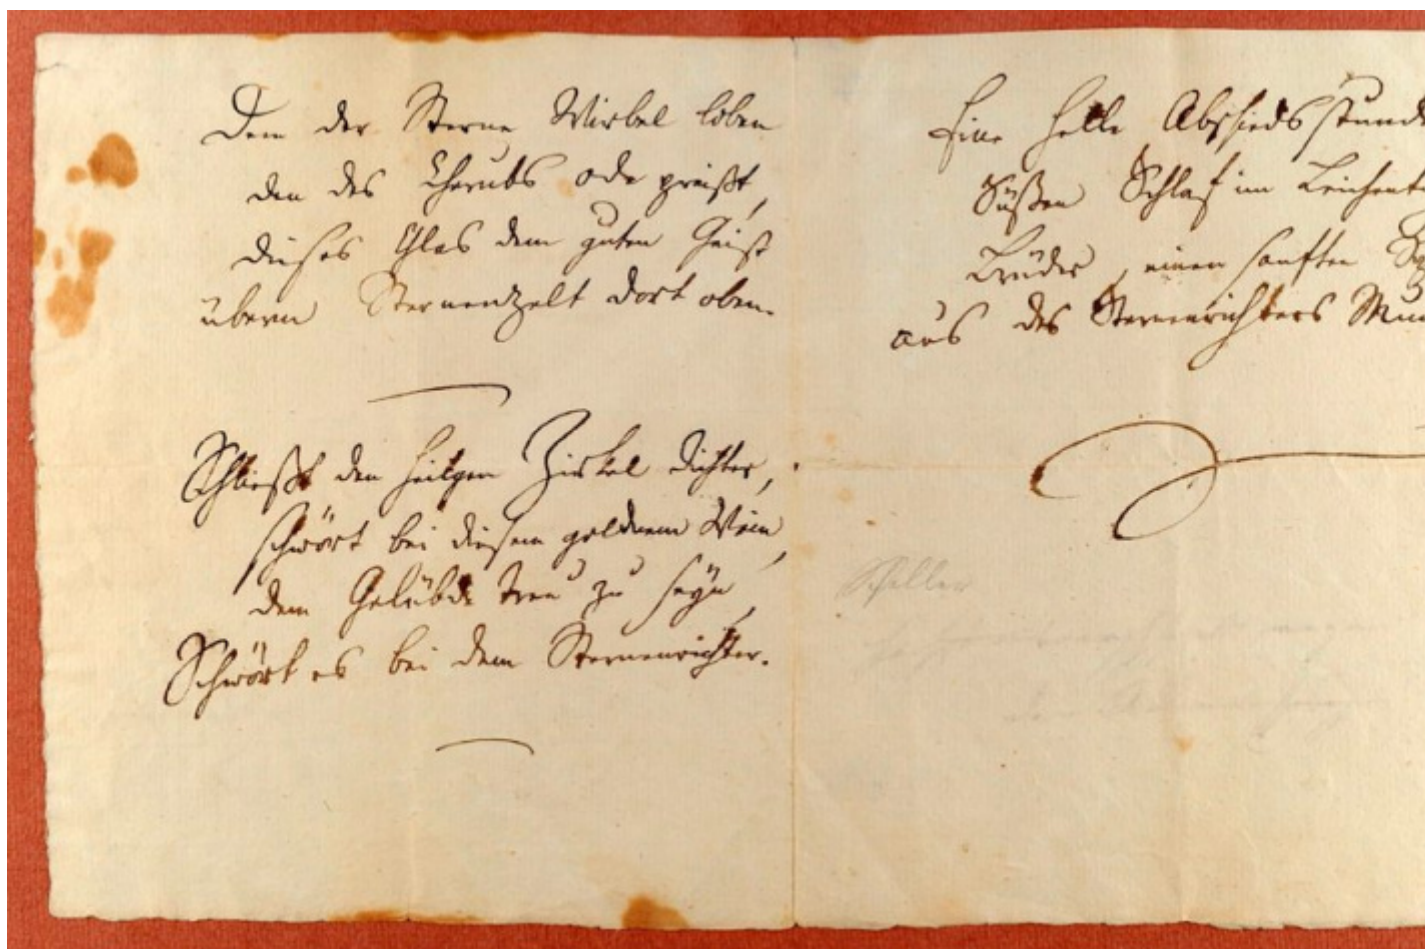 Den der Sterne Wirbel loben
den des Cherubs ode preißt,
dieses Glas dem guten Geist
überm Sternenzelt dort oben.
Schließt den heilgen Zirkel dichter,
schwört bei diesem goldnem Wein,
dem Gelübde treu zu seyn,
Schwört es bei dem Sternenrichter.
Eine helle Abschiedsstunde
Süßen Schlaf im
Brüder, einen sanften
aus des Sternenrichters
Schiller